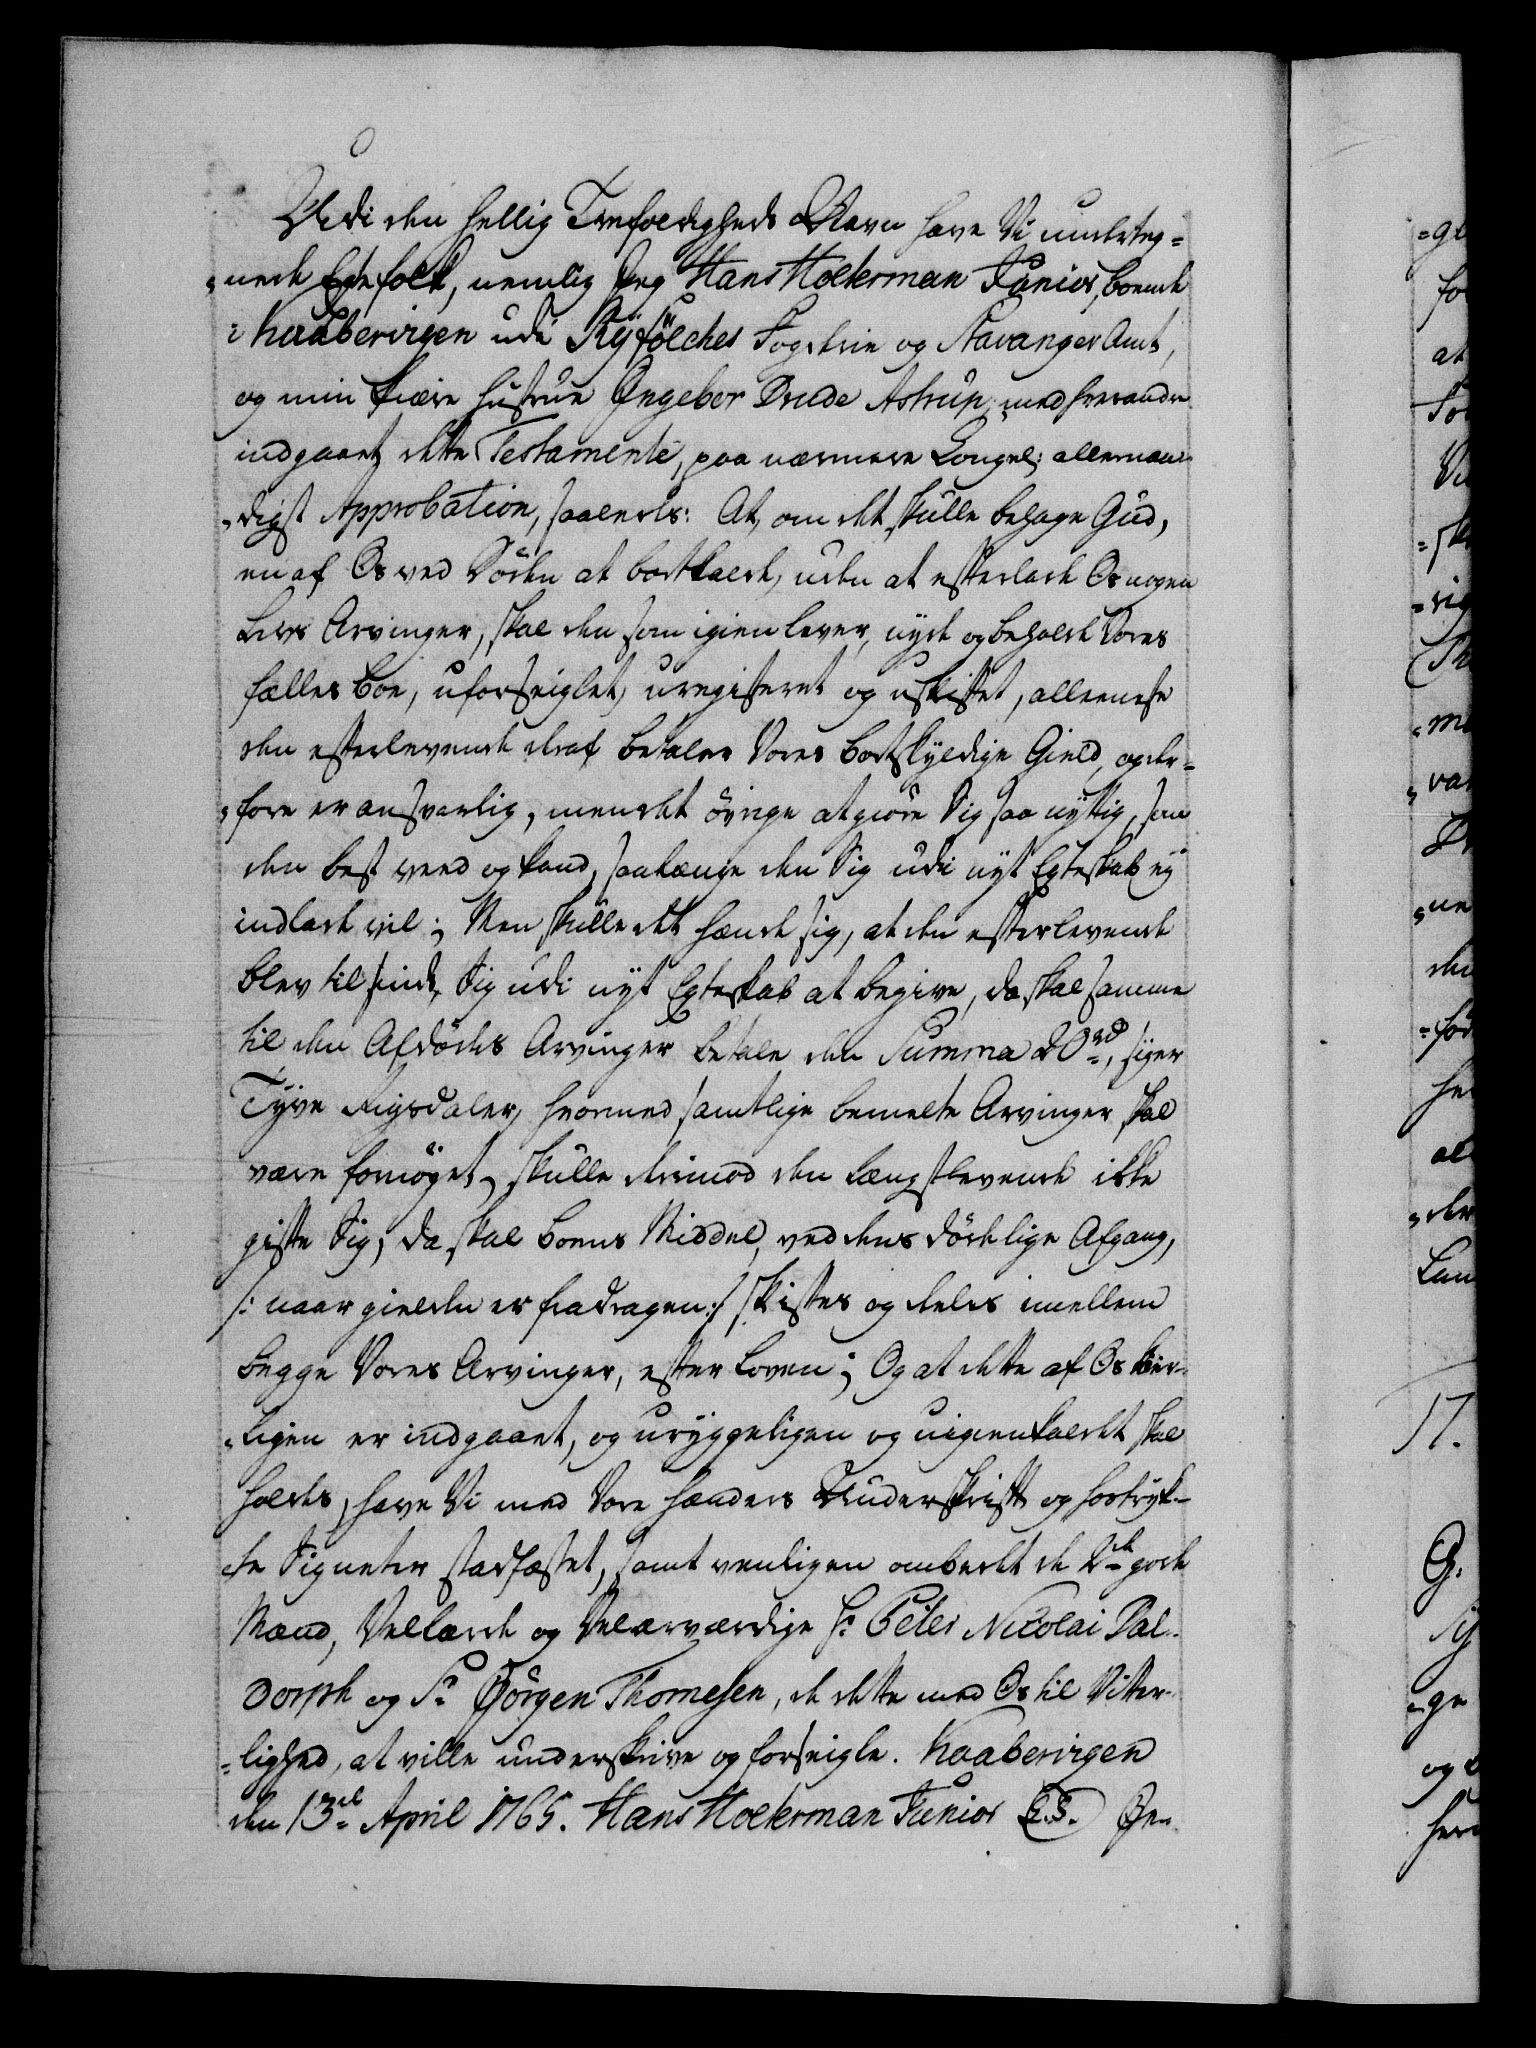 Udi den hellig Trefoldigheds Navn have Vi underteg-
nede Egtefolk, nemlig Jeg Hans Holterman Junior, boende
i Kaabervigen udi Ryefölches Fogderie og Stavanger Amt,
og min kiære Hustrue Ingebor Drude Astrup, med hverandre
indgaaet dette Testamente, paa nærmere Kongel: allernaa-
digst Approbation, saaledes: At, om det skulle behage Gud,
en af Os ved Döden at bortkalde, uden at efterlade Os nogen
Livs Arvinger, skal den som igien lever, nyde og beholde Vores
fælles Boe, uforseiglet, uregisteret og uskiftet, alleeneste
den efterlevende deraf betaler Vores bortskyldige Gield, og der-
fore er ansvarlig, men det övrige at giöre Sig saa nyttig, som
den best veed og kand, saalænge den Sig udi nyt Egteskab ey
indlade vil; Men skulle det hænde sig, at den efterlevende
blev til sinds, Sig udi nyt Egteskab at begive, da skal samme
til den Afdödes Arvinger betale den Summa 20 rd, siger
Tyve Rigsdaler, hvormed samtlige bemelte Arvinger skal
være fornöyet, skulle derimod den længstlevende ikke
gifte Sig, da skal Boens Middel, ved dens dödelige Afgang,
/: naar gielden er fradragen :/ skiftes og deeles imellem
begge Vores Arvinger, efter Loven; Og at dette af Os kier-
ligen er indgaaet, og uryggeligen og uigienkaldet skal
holdes, have Vi med Vore Hænders Underskrift og hostryk-
te Signeter stadfæstet, samt venligen ombedet de 2de gode
Mænd, Vellærde og Velærværdige Hr Peter Nicolai Dal-
dorph og Sr Jörgen Thomesen, de dette med Os til Vitter-
lighed, at ville underskrive og forseigle. Kaabervigen
den 13de April 1765. Hans Holterman Junior (L.S.) In-